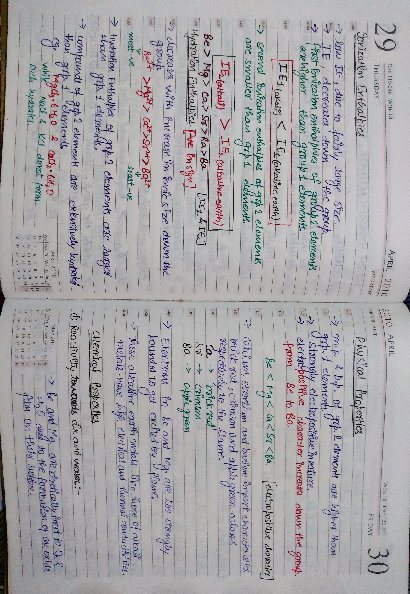 29
THURSDAY
APRIL 2010
Ionization Enthalpies
→ low IE due to fairly large size
→ IE decreases down the group
→ first Ionization enthalpies of group 2 elements
are higher than group 1 elements
IE1 (alkali) < IE1 (alkaline earth)
→ second Ionization enthalpies of group 2 elements
are smaller than group 1 elements.
IE2 (alkali) > IE2 (alkaline earth)
Be > Mg > Ca > Sr > Ra > Ba [IE1 & IE2]
Hydration Enthalpies [-ve in sign]
→ decreases with increase in ionic size down the
group.
Be2+ > Mg2+ > Ca2+ > Sr2+ > Ba2+
most -ve least -ve
→ hydration enthalpies of group 2 elements are larger
than group 1 elements
→ compounds of group 2 element are extensively hydrated
than grp 1 elements
eg. MgCl2·6H2O & CaCl2·6H2O
while NaCl & KCl donot form
such hydrates.
2010 APRIL
FRIDAY
30
Physical Properties
→ m.p & b.p of group 2 element are higher than
group 1 elements
→ Strongly electropositive in nature.
→ electropositive character increases down the group
from Be to Ba.
Be < Mg < Ca < Sr < Ba [electropositive character]
→ Calcium strontium and barium impart characteristic
brick red, crimson and apple green colours
respectively to the flame.
Ca → brick red
Sr → crimson
Ba → apple green
→ Electrons in Be and Mg are too strongly
bounded to get excited by flame.
→ These alkaline earth metals like those of alkali
metals have high electrical and thermal conductivities.
Chemical Properties
i) Reactivity towards air and water:-
→ Be and Mg are kinetically inert to O2 &
H2O due to the formation of an oxide
film on their surface.